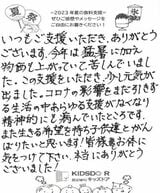 夏祭
～2023年夏の食料支援～
ぜひご感想やメッセージを
ご自由にお書きください！
氷
いつもご支援いただき、ありがとうご
ざいます。今年は猛暑にかえ
物価も上がっていて苦しんでいまし
た。この支援をいただき、少し元気が
出ました。コロナの影響をまだ引きず
る生活の中あらゆる支援がなくなり
精神的にも病んでいたところです。
また生きる希望を持ち子供達とがん
ばりたいと思います！皆様もお体に
気をつけて下さい。本当にありがとう
ございました！
KIDSDOOR
キッズドア